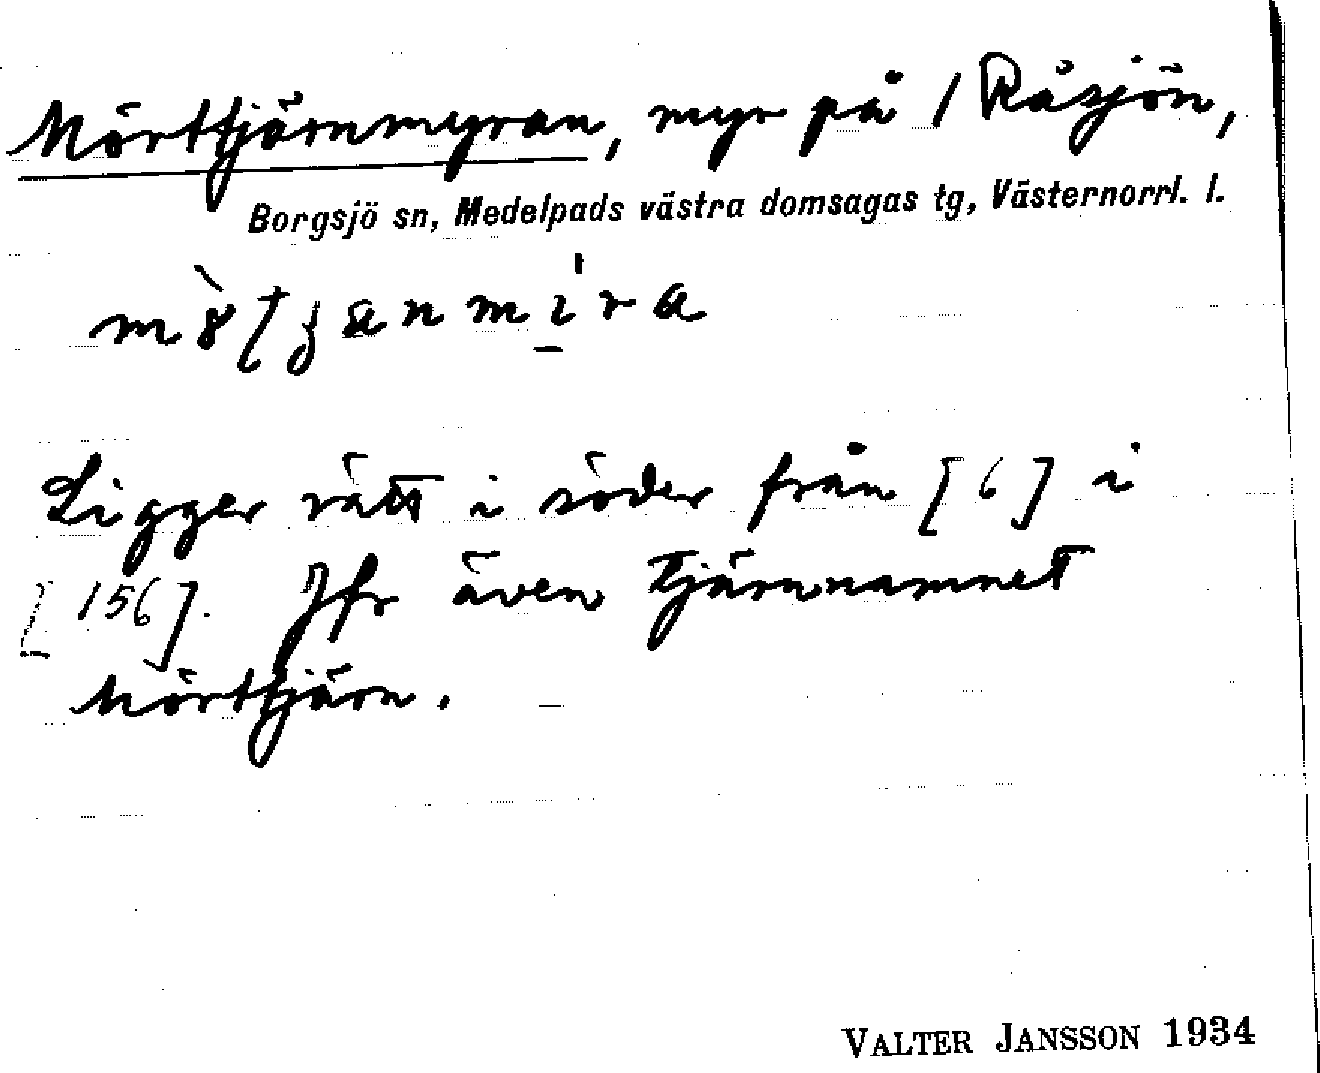 Mörttjärnmyran, myr på 1 Råsjön,
Borgsjö sn, Medelpads västra domsagas tg, Västernorrl. l.
Ligger rätt i söder från [6] i
[156]. Jfr även tjärnnamnet
Mörttjärn.
VALTER JANSSON 1934